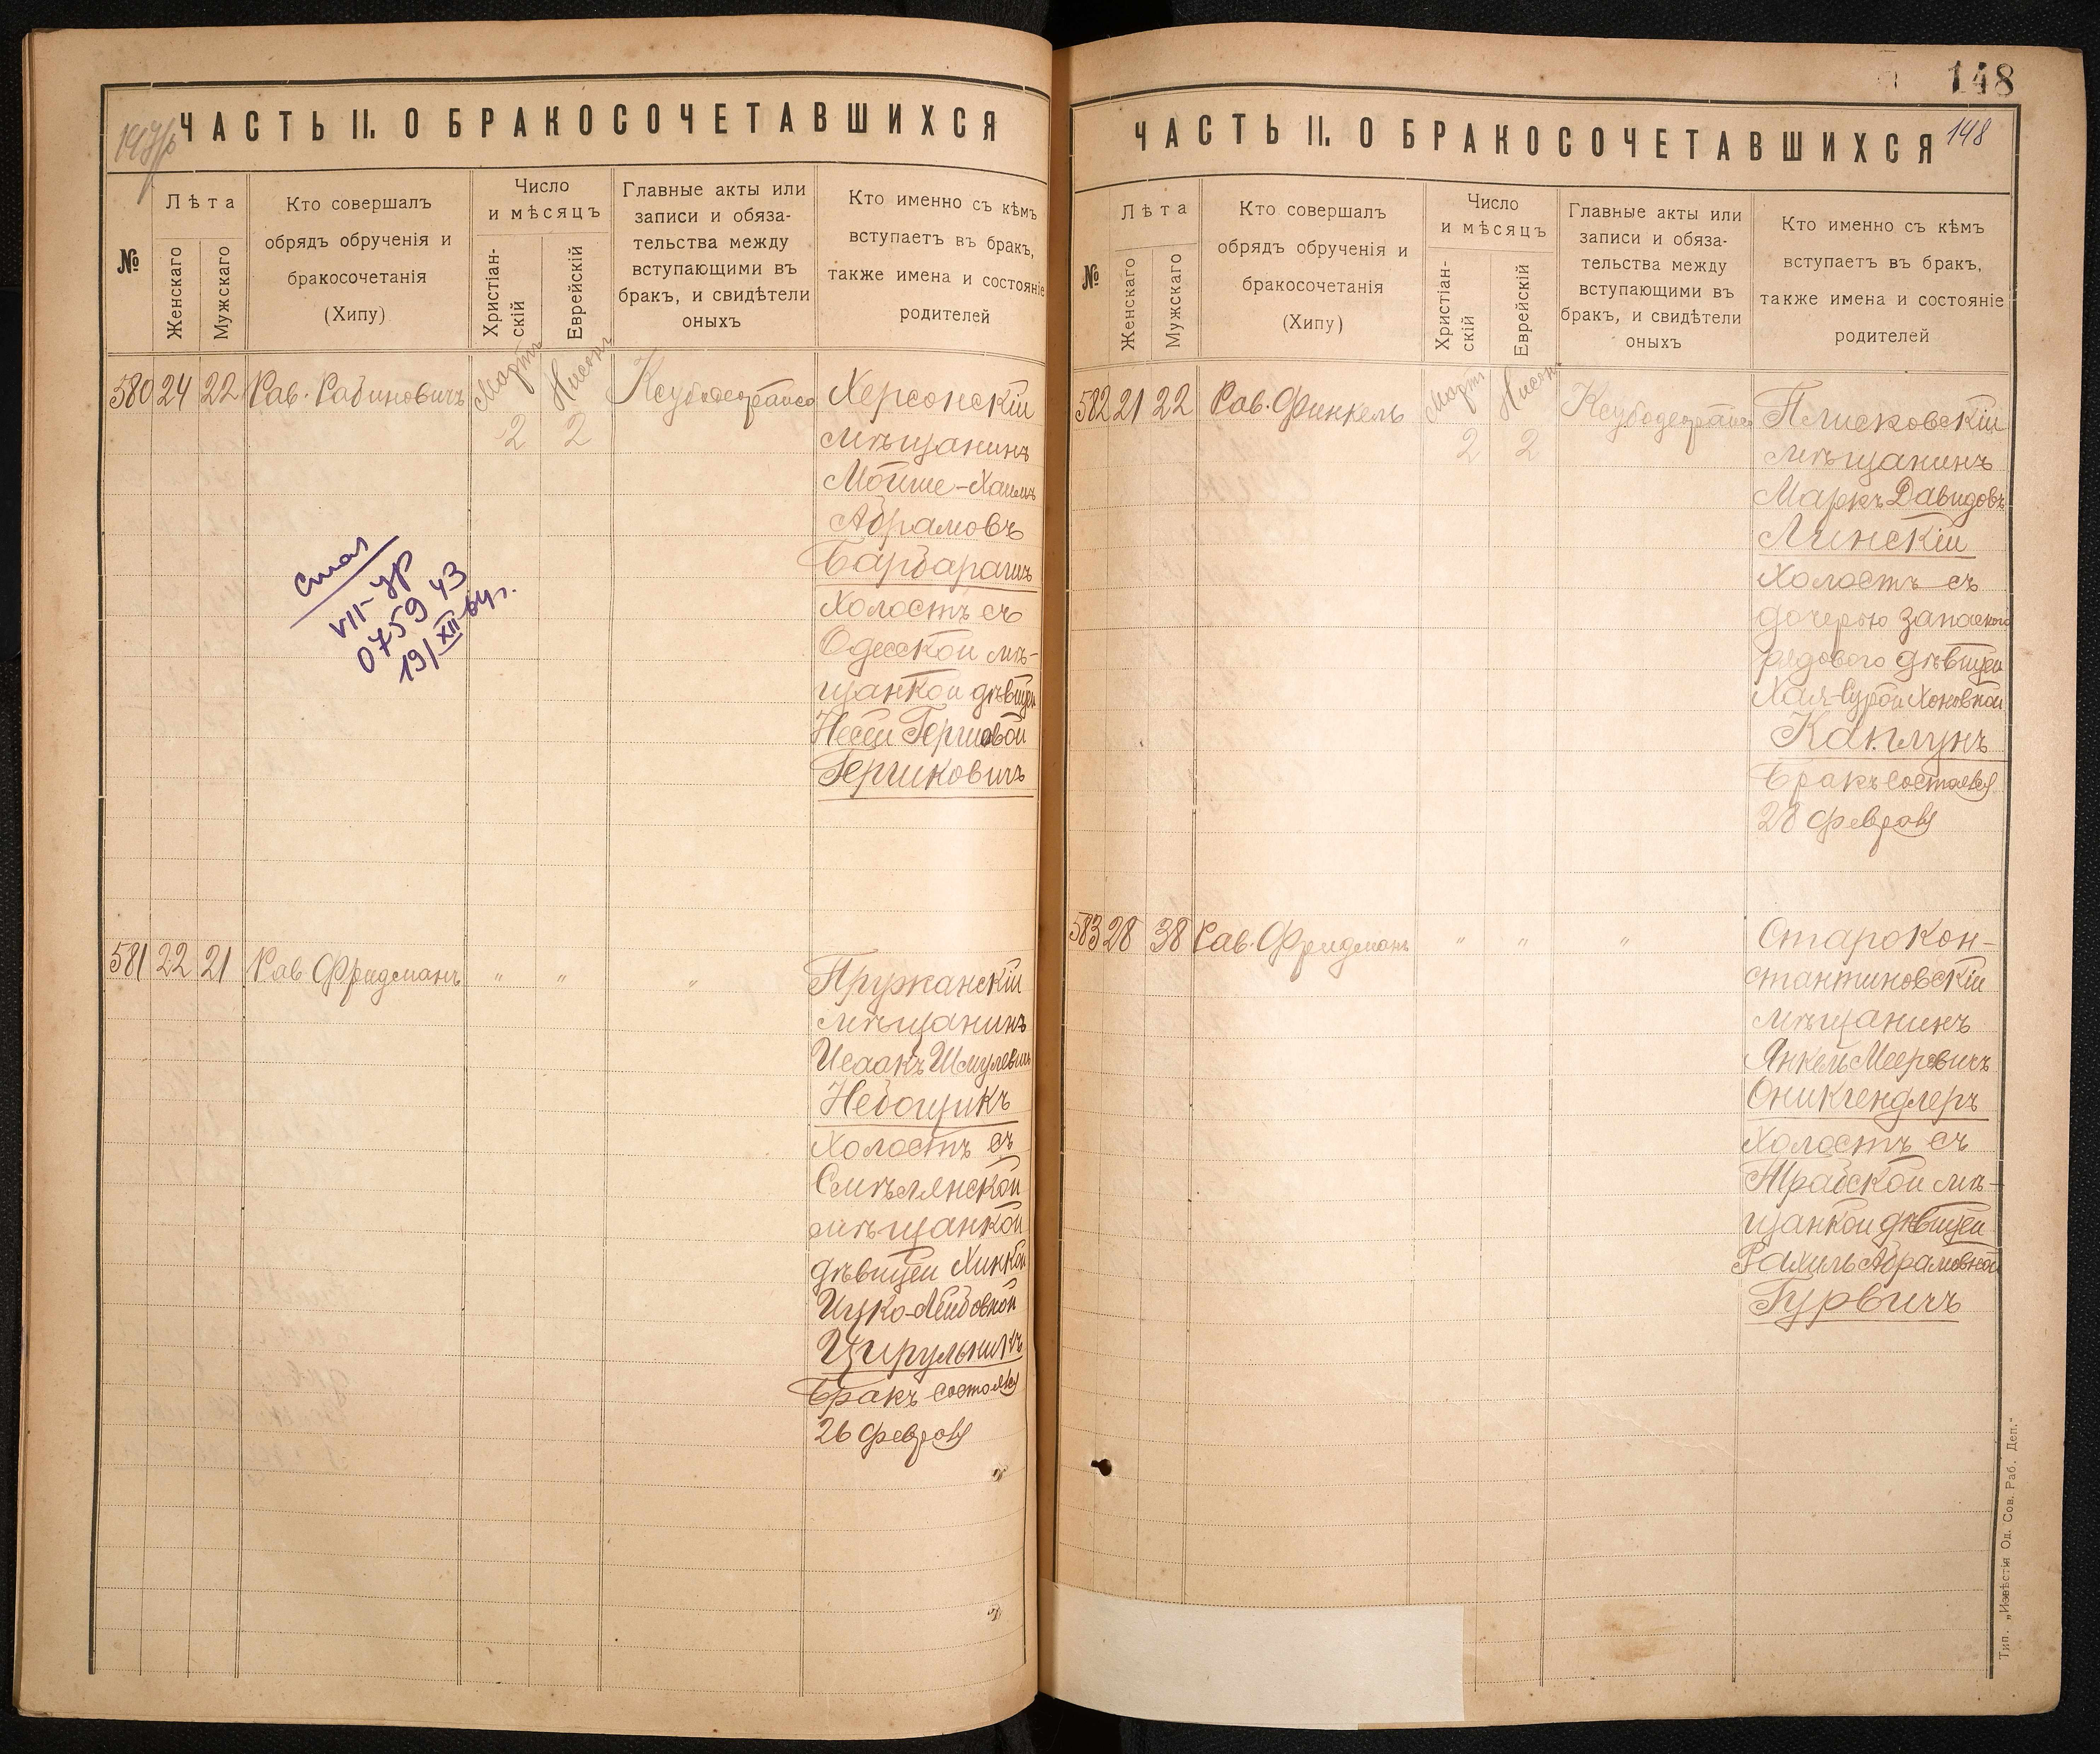 ЧАСТЬ II. О БРАКОСОЧЕТАВШИХСЯ
№
Лѣта
Женскаго
Мужскаго
Кто совершалъ
обрядъ обрученія и
бракосочетанія
(Хипу)
Число
и мѣсяцъ
Христіан-
скій
Еврейскій
Главные акты или
записи и обяза-
тельства между
вступающими въ
бракъ, и свидѣтели
оныхъ
Кто именно съ кѣмъ
вступаетъ въ бракъ,
также имена и состояніе
родителей
580 24 22 Рав. Рабиновичъ
Мартъ
2
Нисонъ
2
Херсонскій
мѣщанинъ
Мойше-Хаимъ
Абрамовъ
Барбарашъ
Холостъ съ
Одесской мѣ-
щанкой дѣвицей
Несей Гершовой
Гершковичъ
VII-ур
075943
19/XII-64г.
581 22 21 Рав Фридманъ " " "
Пружанскій
мѣщанинъ
Исаакъ Шмулевичъ
Небощикъ
Холостъ съ
Смѣлянской
мѣщанкой
дѣвицей Хинкой
Ицко-Лейбовной
Цирульникъ
Бракъ состоялся
26 февраля
148
ЧАСТЬ II. О БРАКОСОЧЕТАВШИХСЯ
148
№
Лѣта
Женскаго
Мужскаго
Кто совершалъ
обрядъ обрученія и
бракосочетанія
(Хипу)
Число
и мѣсяцъ
Христіан-
скій
Еврейскій
Главные акты или
записи и обяза-
тельства между
вступающими въ
бракъ, и свидѣтели
оныхъ
Кто именно съ кѣмъ
вступаетъ въ бракъ,
также имена и состояніе
родителей
582 21 22 Рав. Финкель
Мартъ
2
Нисонъ
2
Плисковскій
мѣщанинъ
Маркъ Давидовъ
Линскій
Холостъ съ
дочерью запасного
рядового дѣвицей
Хая-Сурой Хоновной
Каплунъ
Бракъ состоялся
28 февраля
583 28 38 Рав. Фридманъ " " "
Старокон-
стантиновскій
мѣщанинъ
Янкель Мееровичъ
Оникгендлеръ
Холостъ съ
мѣ-
щанкой дѣвицей
Рахиль Абрамовной
Гурвичъ
Тип. „Извѣстія Од. Сов. Раб. Деп."